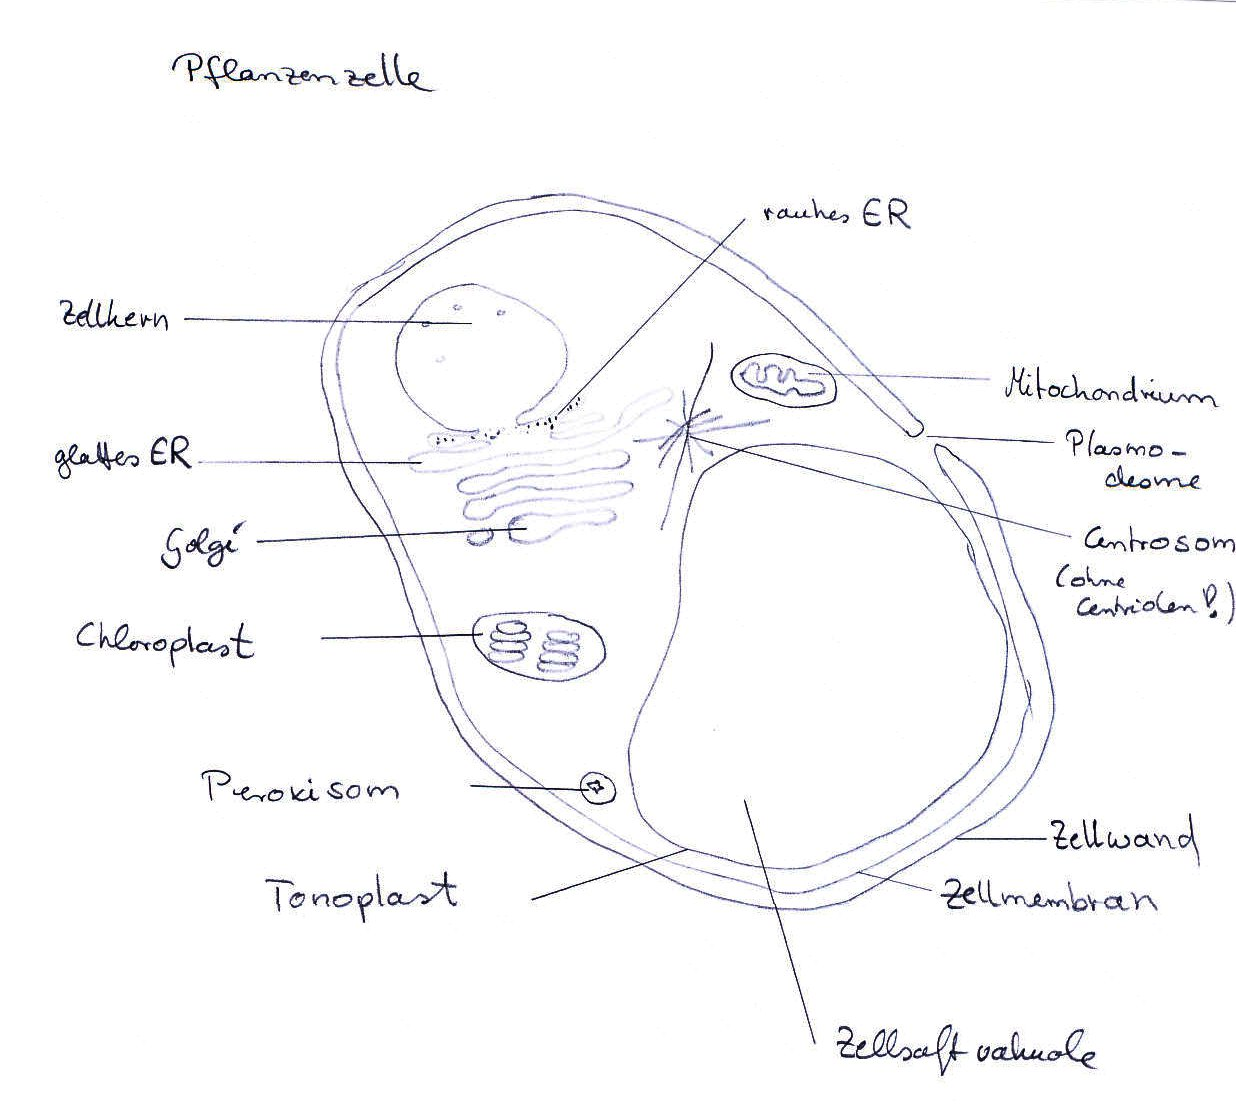 Pflanzenzelle
rauhes ER
Zellkern
Mitochondrium
Plasmo-
desme
glattes ER
Golgi
Centrosom
(ohne
Centriolen!)
Chloroplast
Peroxisom
Zellwand
Tonoplast
Zellmembran
Zellsaftvakuole